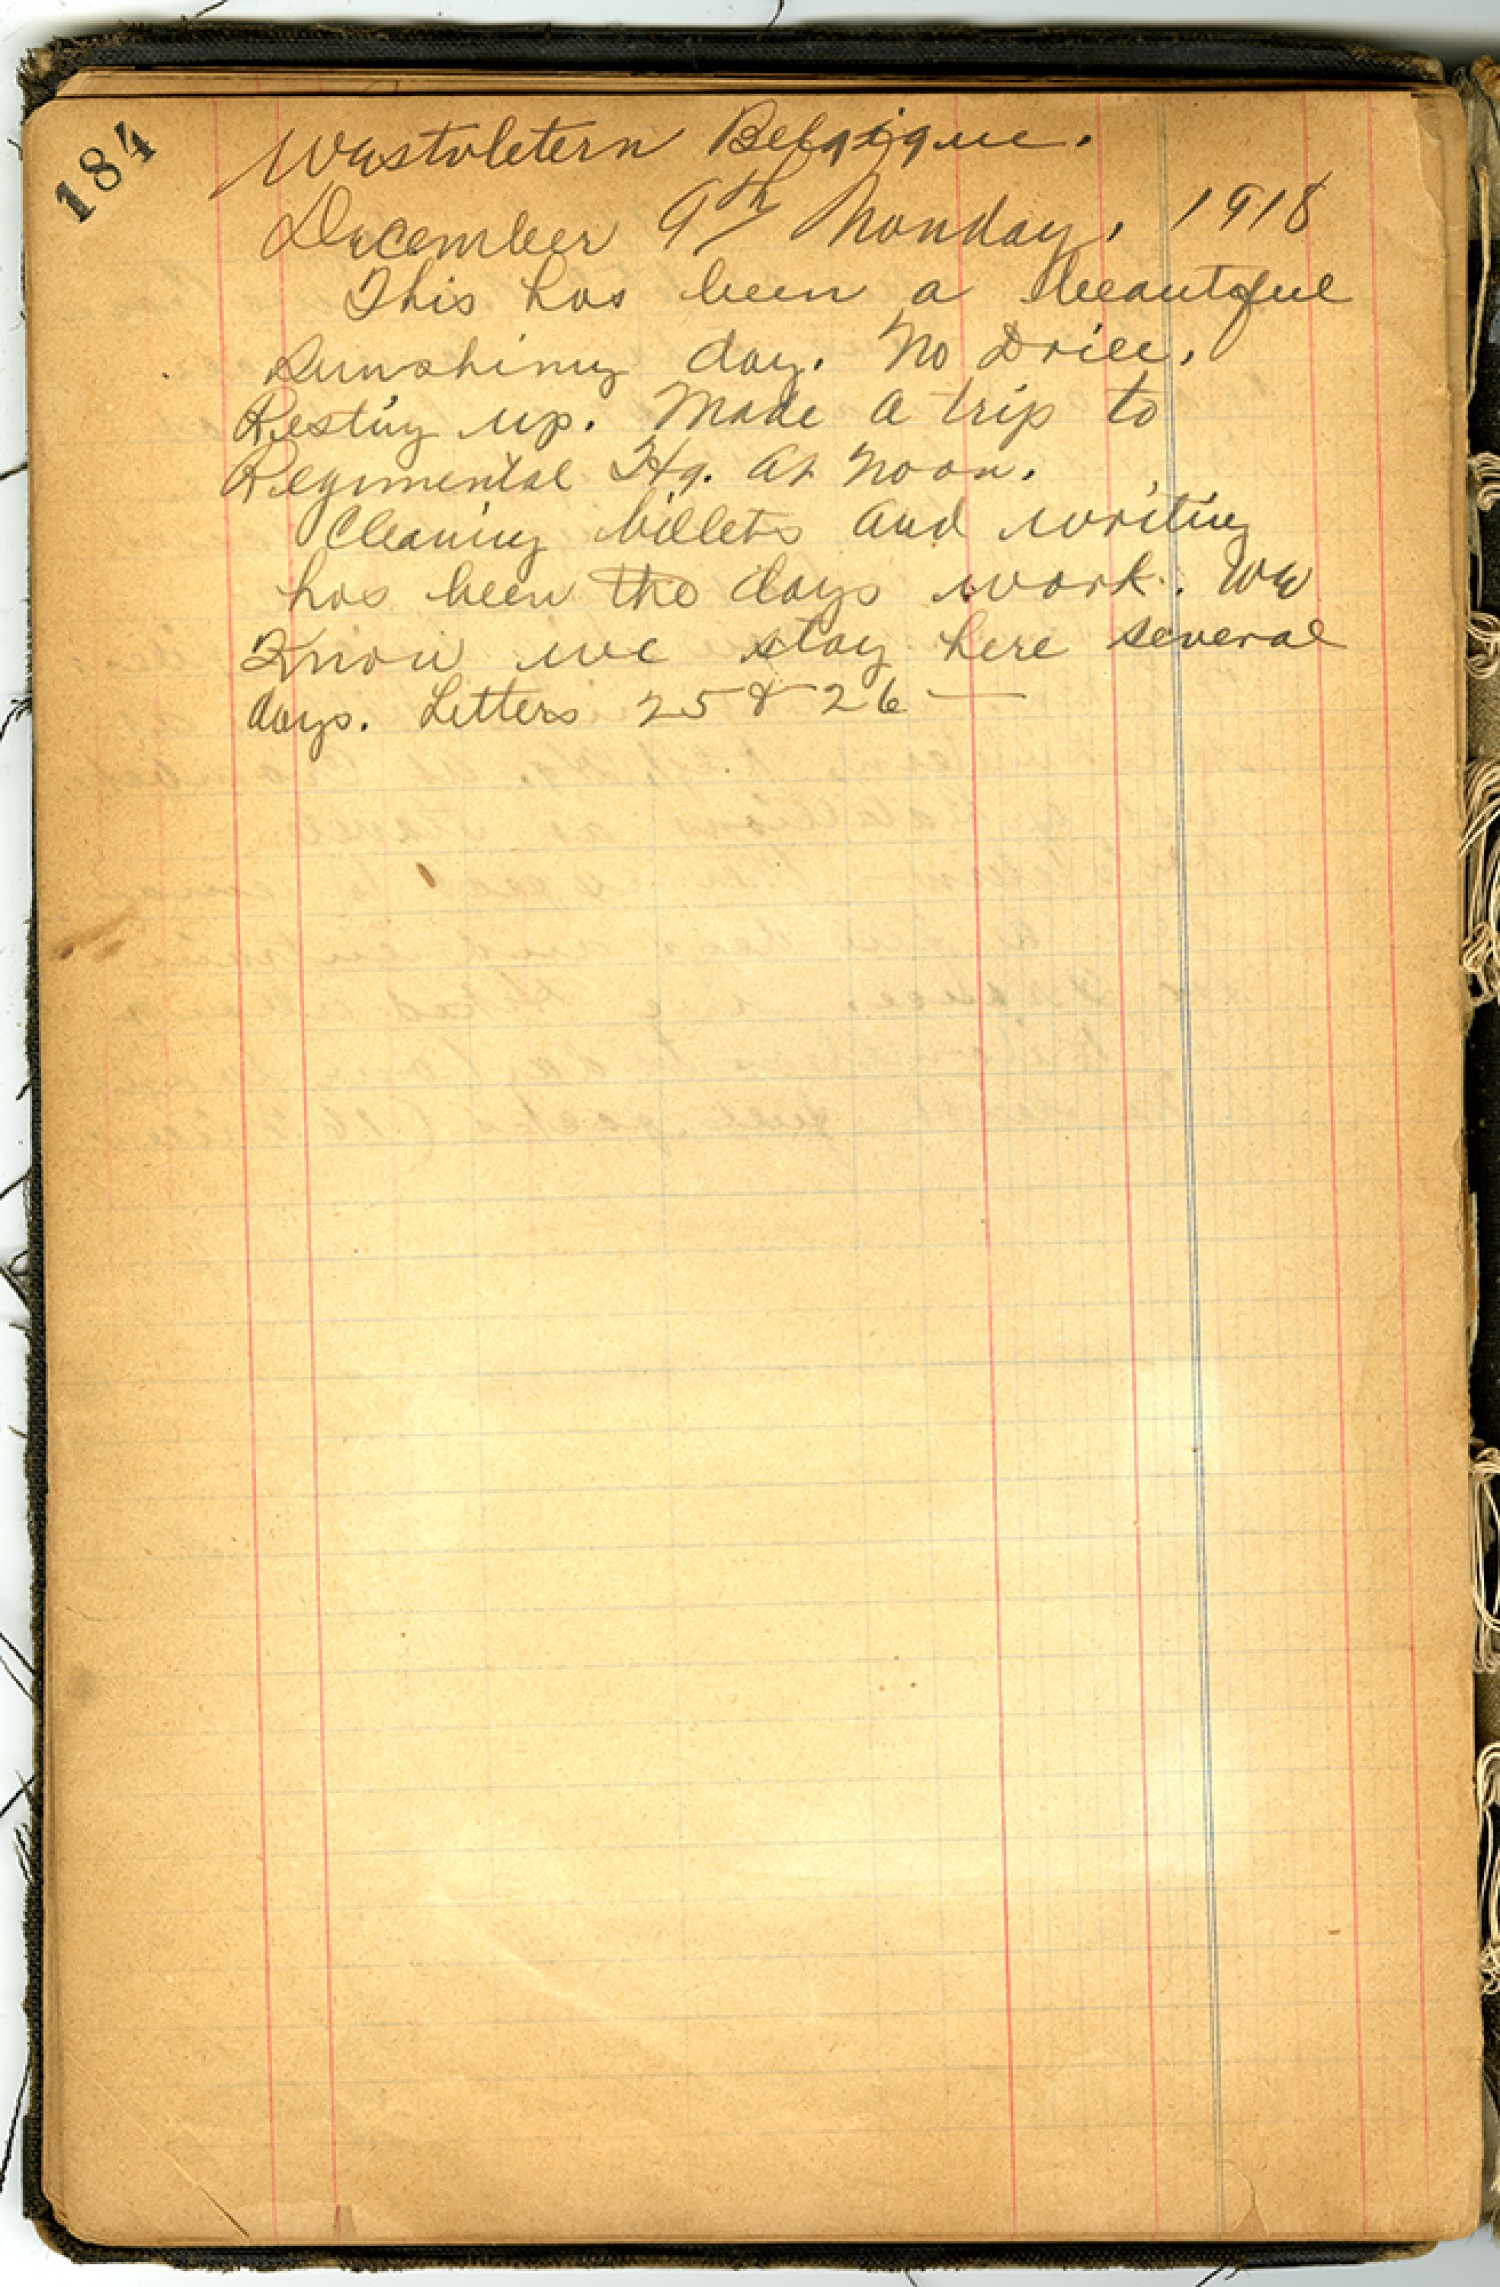 184
Westvletern Belgique.
December 9th Monday, 1918
This has been a beautiful
Sunshiny day. No Drill.
Resting up. Made a trip to
Regimental Hq. At Noon.
Cleaning billets and writing
has been the days work. We
Know we stay here several
days. Letters 25 & 26 —